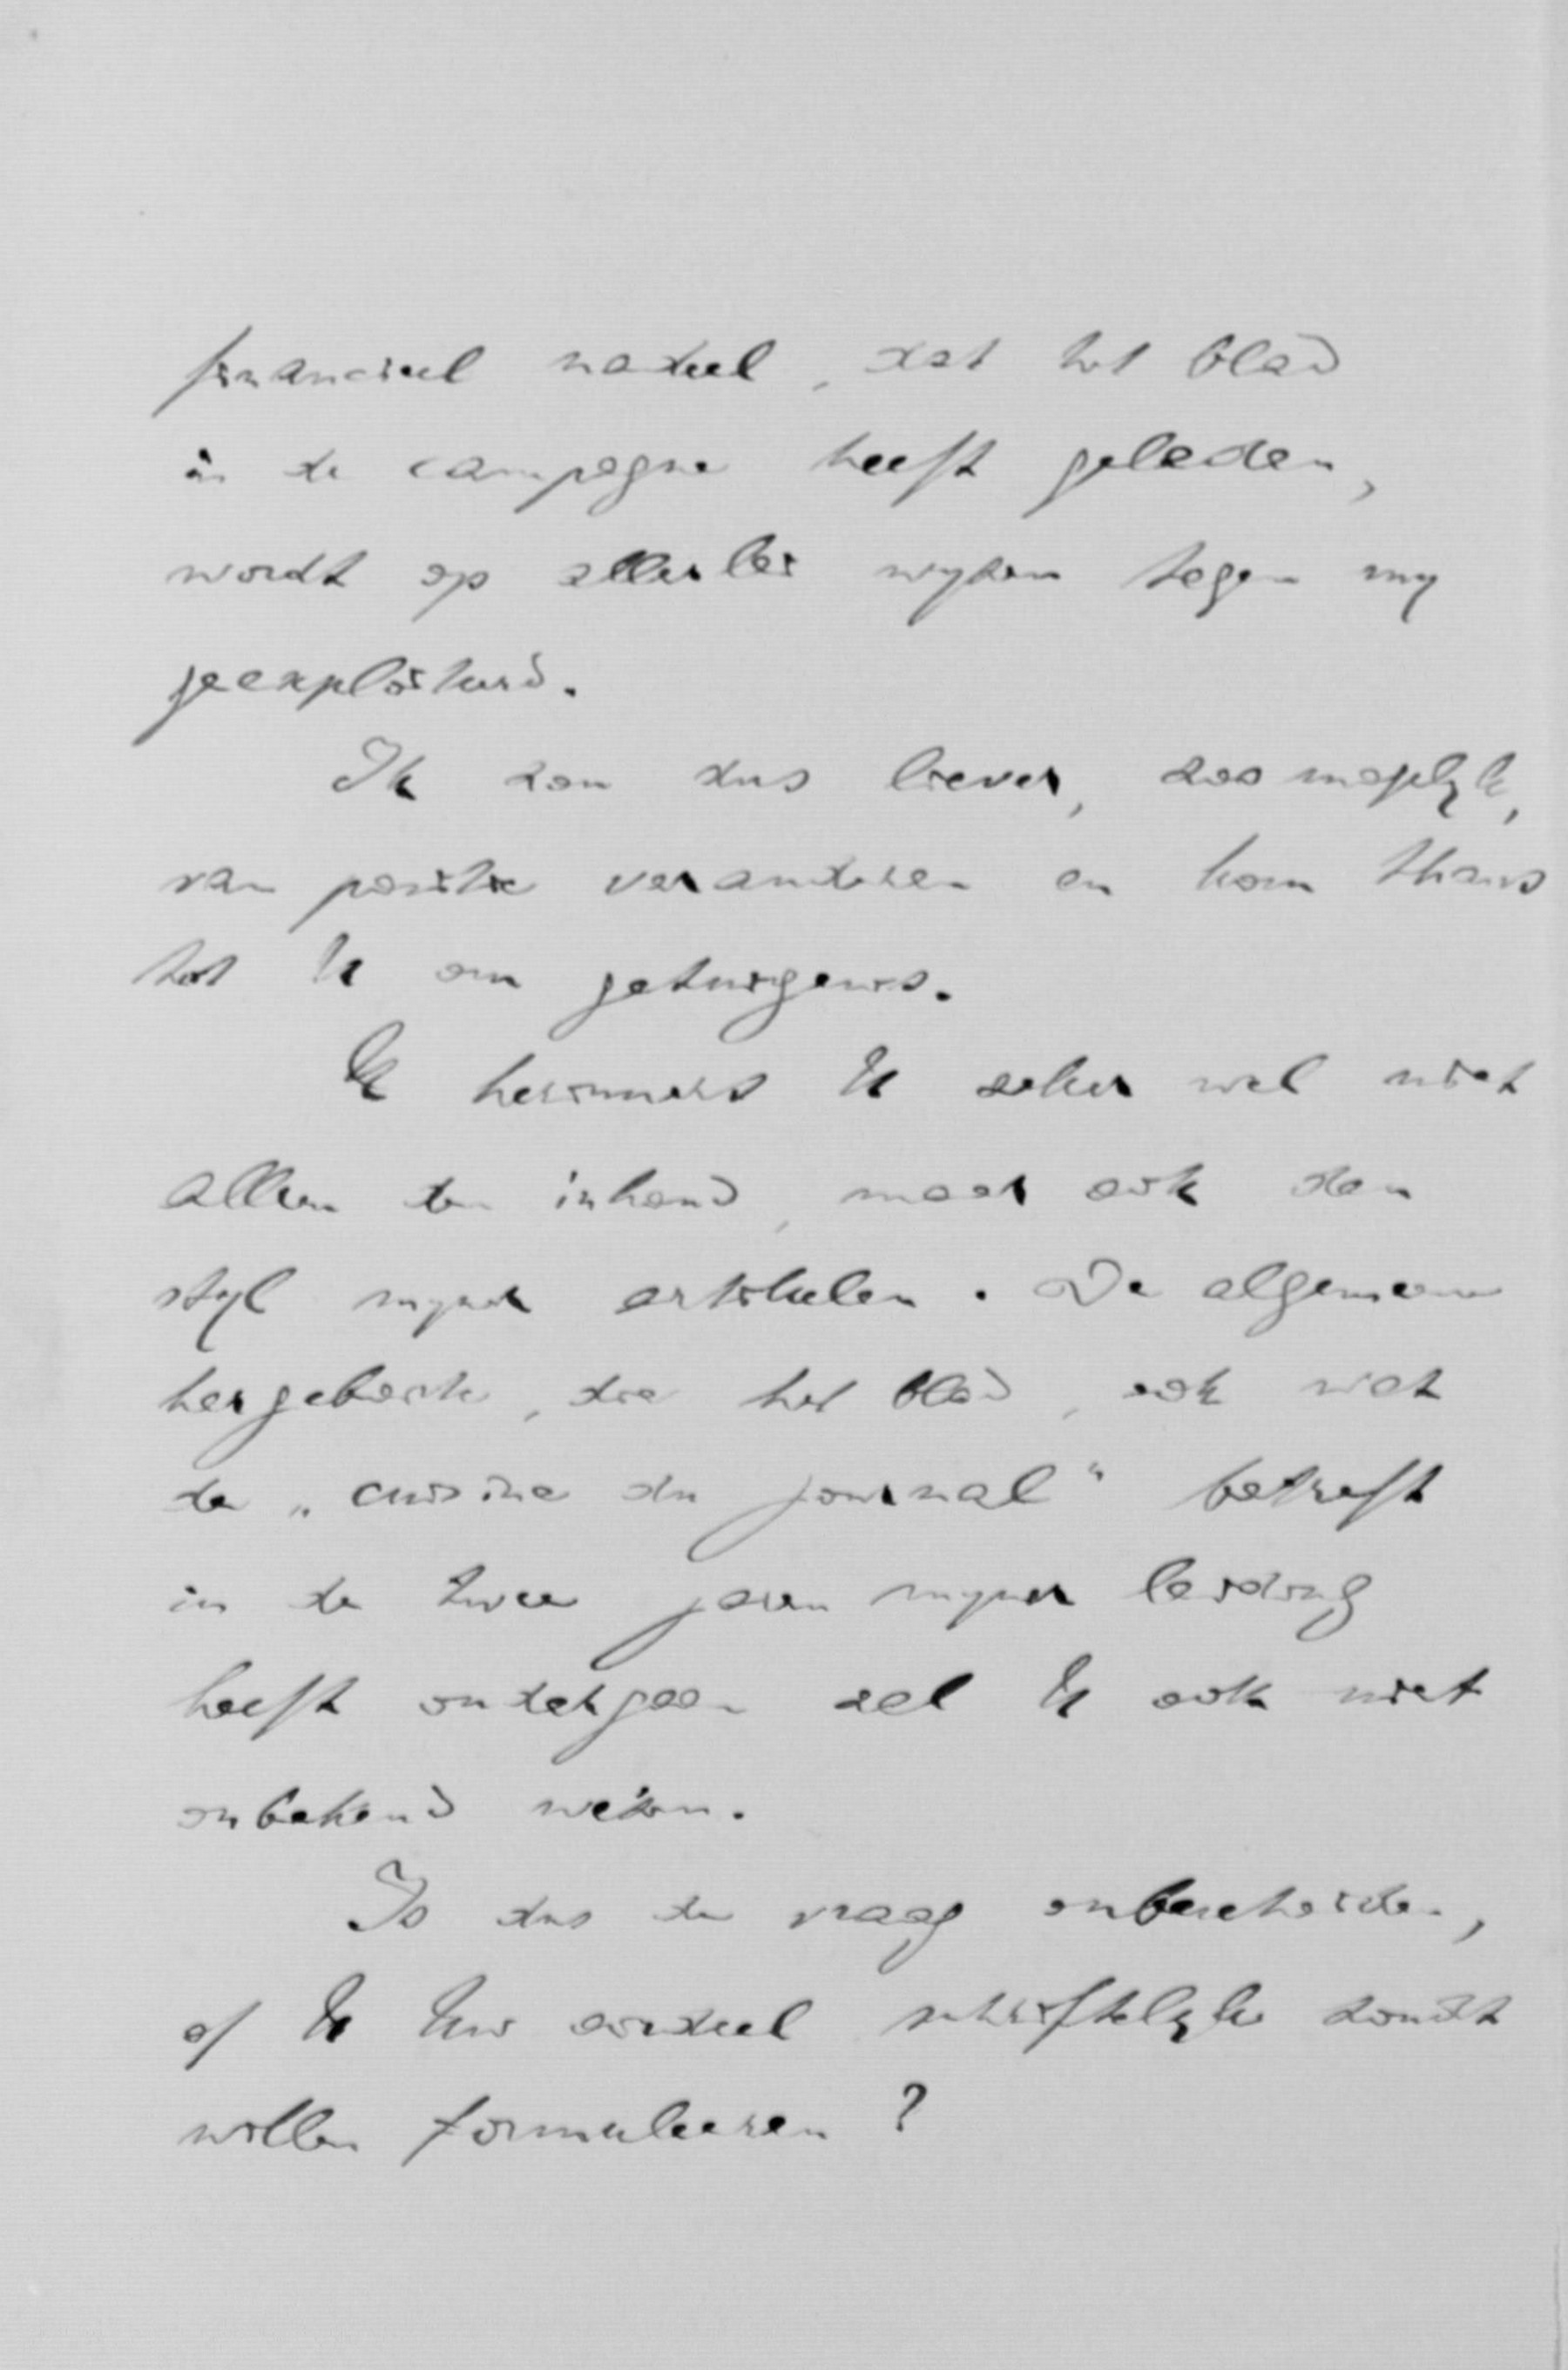 financieel nadeel, dat het blad
in de campagne heeft geleden,
wordt op allerlei wyzen tegen my
geexploiteerd.
Ik zou dus liever, zoo mogelyk,
van positie veranderen en kom thans
tot U om getuigenis.
U herinnert U zeker wel niet
alleen den inhoud, maar ook den
styl myner artikelen. De algemeene
hergeboorte, die het blad, ook wat
de „cuisine du journal" betreft
in de twee jaren myner leiding
heeft ondergaan zal U ook niet
onbekend wezen.
Is dus de vraag onbescheiden,
of U Uw oordeel schriftelyk zoudt
willen formuleeren?